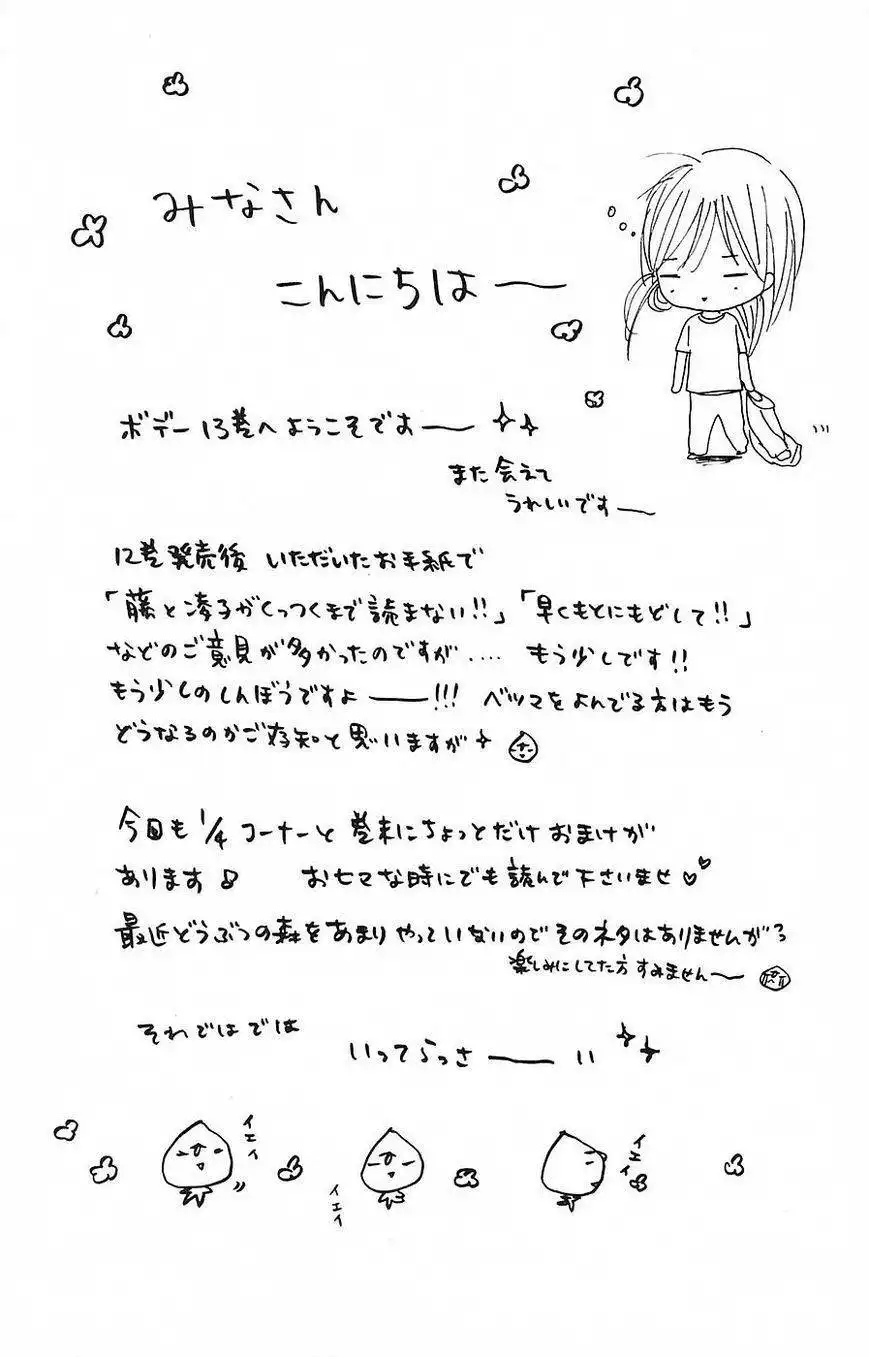 みなさん
こんにちはー
ボデー13巻へようこそですー
また会えて
うれしいですー
12巻発売後 いただいたお手紙で
「藤と凌子がくっつくまで読まない!!」「早くもとにもどして!!」
などのご意見が多かったのですが.... もう少しです!!
もう少しのしんぼうですよー!!! ベツマをよんでる方はもう
どうなるのかご存知と思いますが
今回も 1/4 コーナーと 巻末にちょっとだけ おまけが
あります♪ おヒマな時にでも 読んで下さいませ♡♡
最近どうぶつの森をあまりやっていないのでそのネタはありませんが
楽しみにしてた方 すみませんー
それではでは
いってらっさーい
イエイ
イエイ
イエイ